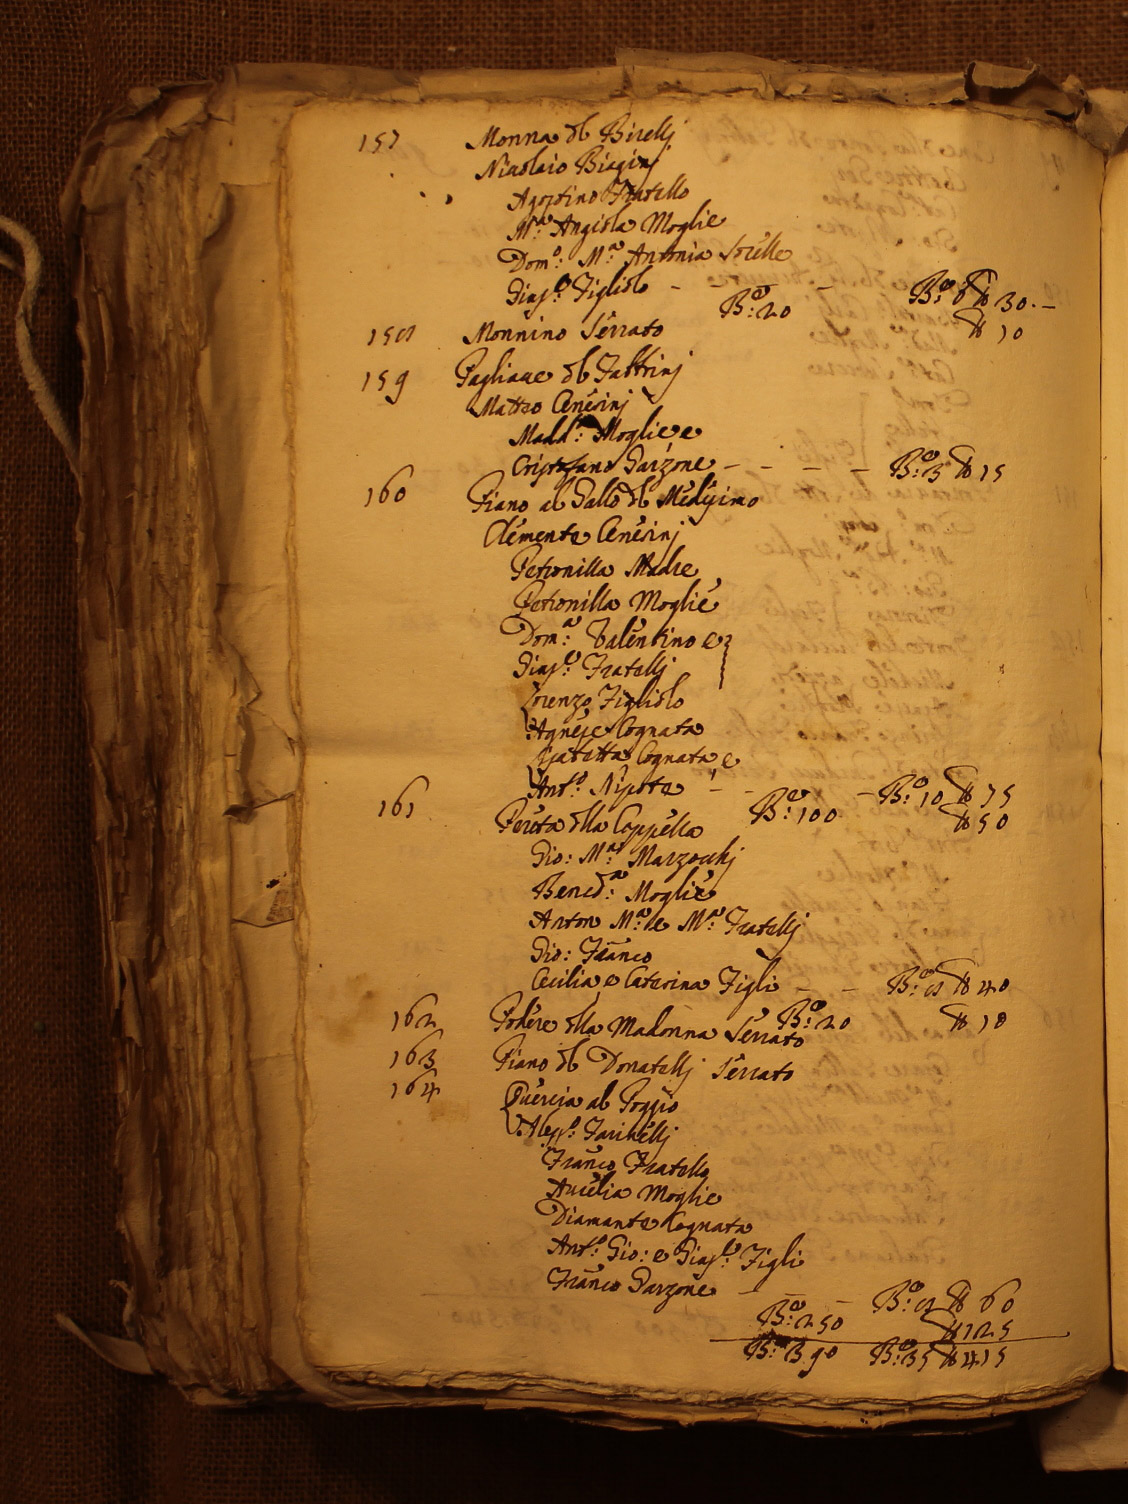 157 Monna di Birelli
Nicolaio Biagini
Agostino Fratello
M.a Angiola Moglie
Dom.o: M.a Antonia Sorelle
Giuse.e Figliolo - - B.e: 6 ℔ 30. -
B.e: 20 ℔ 10
158 Monnino Serrato
159 Pagliaue di Fabbrini
Matteo Cenesini
Madd.a: Moglie e
Cristofano Garzone - - - - B.e: 3 ℔ 15
160 Piano al Gallo di Medesimo
Clemente Cenesini
Petronilla Madre
Petronilla Moglie
Dom.a: Valentino e
Giuse.e: Fratelli
Lorenzo Figliolo
Agnese Cognata
Cognata e
Ant.o: Nipote - - - B.e: 10 ℔ 75
161 Pereta della Cappella B.e: 100 ℔ 50
Gio: M.a: Marzocchi
Bened.a: Moglie
Anton M.a: e M.a Fratelli
Gio: Franco
Cecilia e Caterina Figli - - B.e: 8 ℔ 40
162 Podere della Madonna Serrato B.e: 20 ℔ 10
163 Piano di Donatelli Serrato
164 Quercia al Poggio
Aless.o: Farinelli
Franco Fratello
Aurelia Moglie
Diamante Cognata
Ant.o: Gio: e Giuse.e: Figli
Franco Garzone - - - B.e: 8 ℔ 60
B.e: 250 ℔ 125
B.e: 390 B.e: 35 ℔ 415